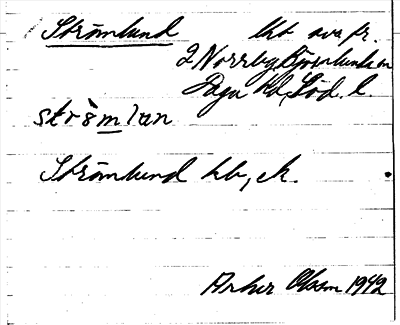 Strömlund Urb ava fr.
2 Norrby Björnlunda sn
Daga hd, Söd. l.
strö̀mlan
Strömlund hb, ek.
Arthur Olsson 1942